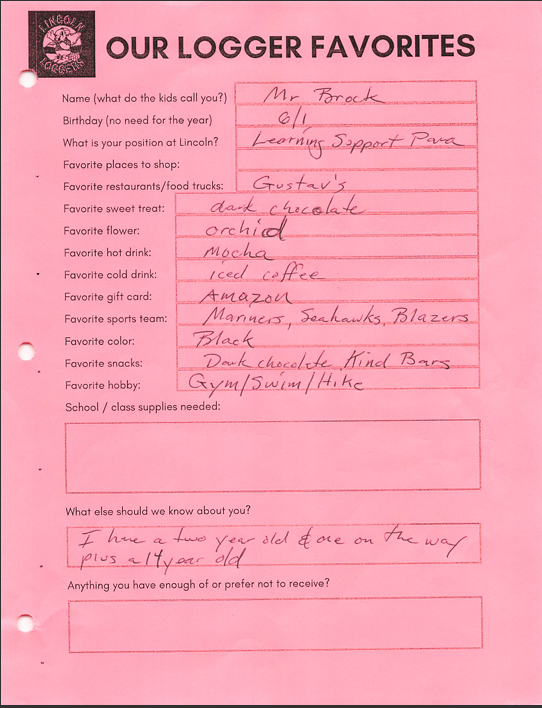 LINCOLN
LOGGERS
OUR LOGGER FAVORITES
Name (what do the kids call you?) Mr Brock
Birthday (no need for the year) 6/1
What is your position at Lincoln? Learning Support Para
Favorite places to shop:
Favorite restaurants/food trucks: Gustav's
Favorite sweet treat: dark chocolate
Favorite flower: orchid
Favorite hot drink: mocha
Favorite cold drink: iced coffee
Favorite gift card: Amazon
Favorite sports team: Mariners, Seahawks, Blazers
Favorite color: Black
Favorite snacks: Dark chocolate, Kind Bars
Favorite hobby: Gym/Swim/Hike
School / class supplies needed:
What else should we know about you?
I have a two year old & one on the way
plus a 14 year old
Anything you have enough of or prefer not to receive?